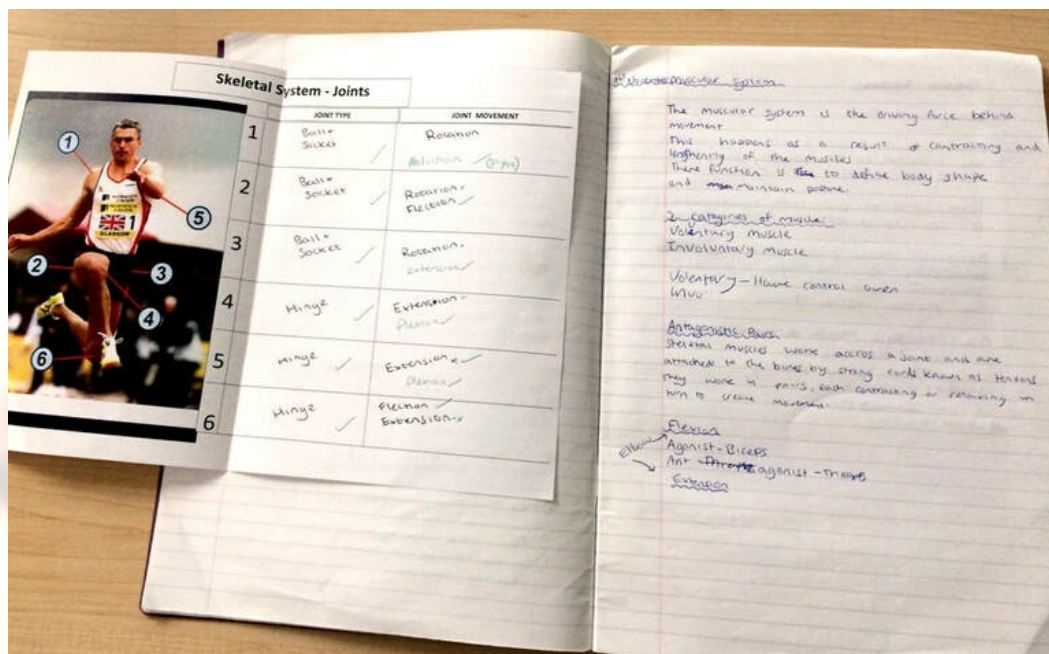 Skeletal System - Joints
JOINT TYPE
JOINT MOVEMENT
1
Ball +
Socket
Rotation
2
Ball +
Socket
Rotation
Flection
3
Ball +
Socket
Rotation
extension
4
Hinge
Extension
5
Hinge
Extension
6
Hinge
Flection
Extension
1
5
2
3
4
6
1
GLASGOW
The muscular system is the driving force behind
movement
This happens as a result of contracting and
of the muscles
There function is to define body shape
and maintain
2 categories of muscle:
Voluntary muscle
Involuntary muscle
control
Antagonistic Pairs
Skeletal muscles work accros a joint and are
attached to the bones by strong cords known as tendons
They work in pairs, each contracting or relaxing in
turn to create movement.
Flexion
Elbow
Agonist - Biceps
Ant agonist -
Extension